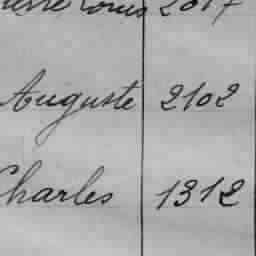 Louis 2017
Auguste 2102
Charles 1312